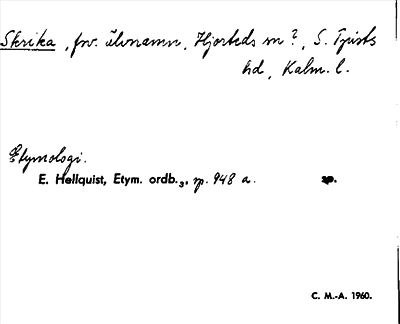 Skrika, fsv. älvnamn, Hjorteds sn?, S. Tjusts
hd, Kalm. l.
Etymologi.
E. Hellquist, Etym. ordb.₃, sp. 948 a.
C. M.-A. 1960.